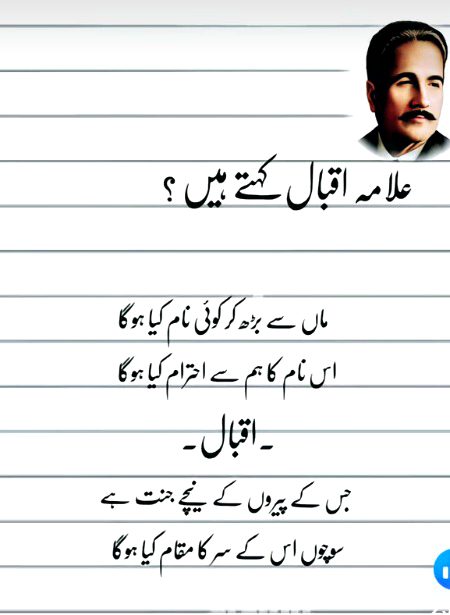 علامہ اقبال کہتے ہیں ؟
ماں سے بڑھ کر کوئی نام کیا ہوگا
اس نام کا ہم سے احترام کیا ہوگا
۔اقبال۔
جس کے پیروں کے نیچے جنت ہے
سوچوں اس کے سر کا مقام کیا ہوگا